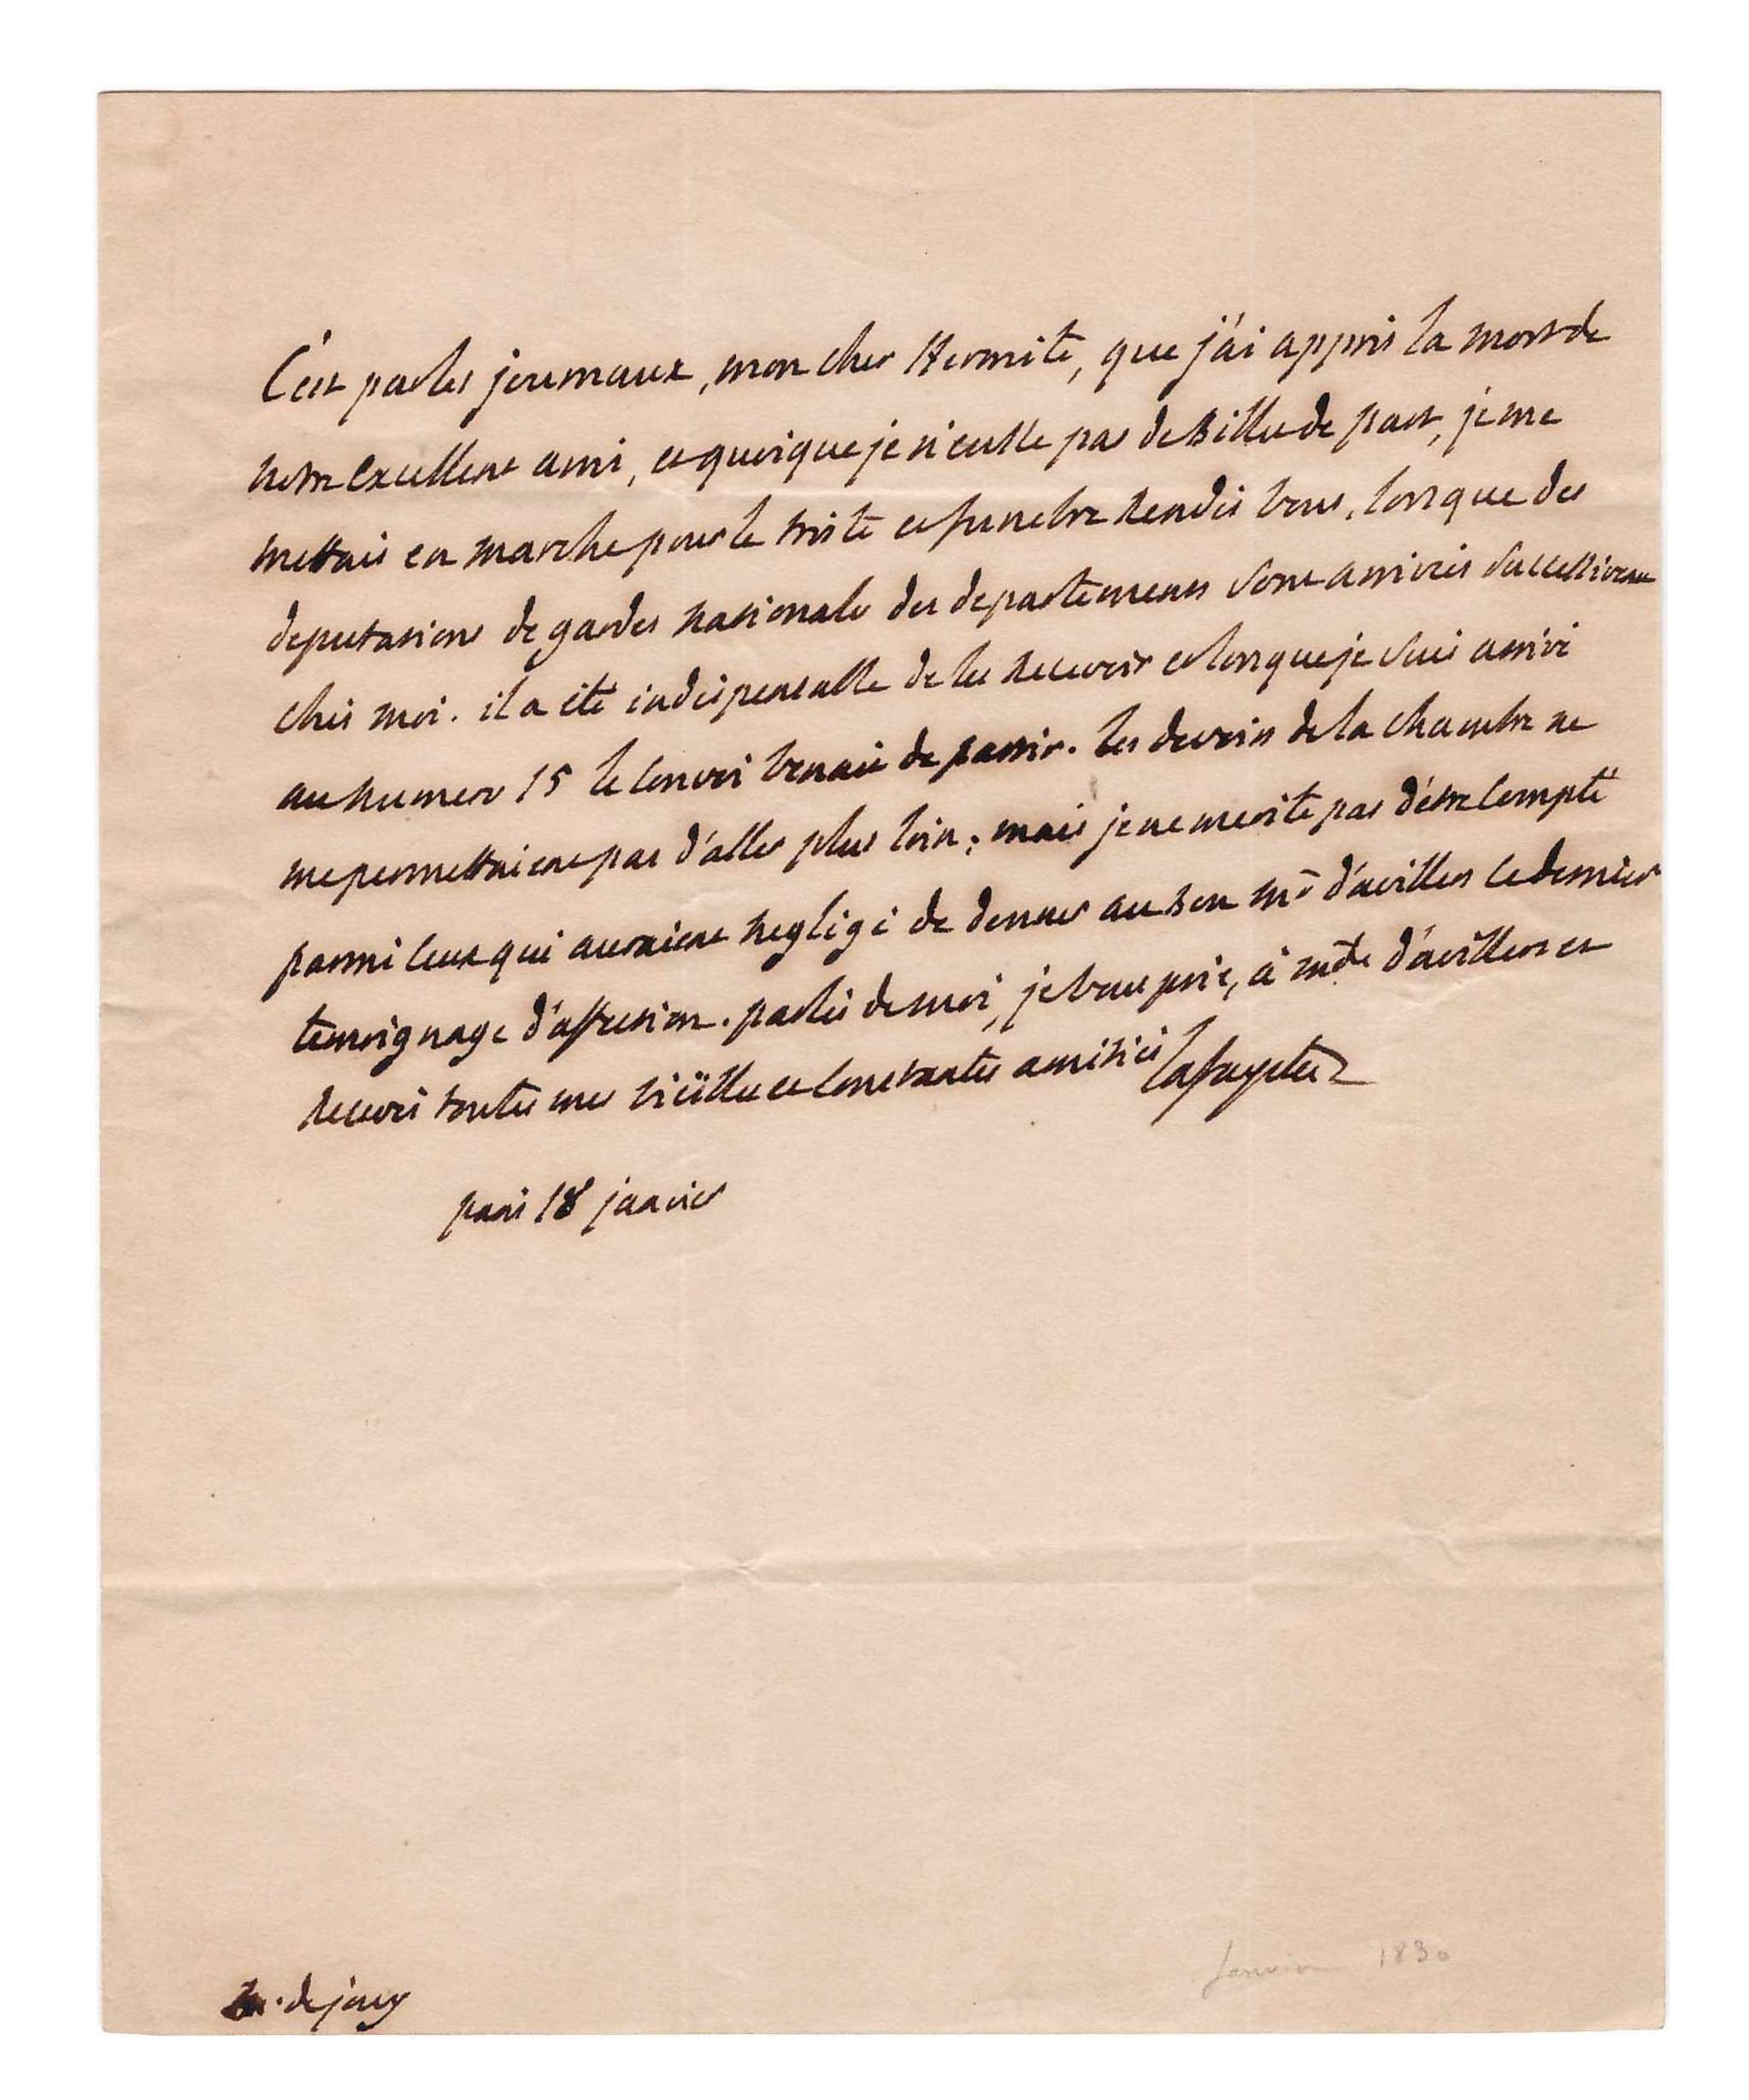 C'est par les journaux, mon cher Hermite, que j'ai appris la mort de
notre excellent ami, et quoique je n'eusse pas de billet de part, je me
mettais en marche pour le triste et funebre rendés vous, lorsque des
deputations de gardes nationales des departemens sont arrivées successivemt
chés moi. il a été indispensable de les recevoir et lorsque je suis arrivé
au numero 15 le convoi venait de partir. les devoirs de la chambre ne
me permettaient pas d'aller plus loin; mais je ne merite pas d'être compté
parmi ceux qui auraient negligé de donner au bon mr d'avillers ce dernier
temoignage d'affection. parlés de moi, je vous prie, à mde d'avillers et
recevés toutes mes vieilles et constantes amitiés Lafayette
paris 18 janvier
m. de jouy
Janvier 1830